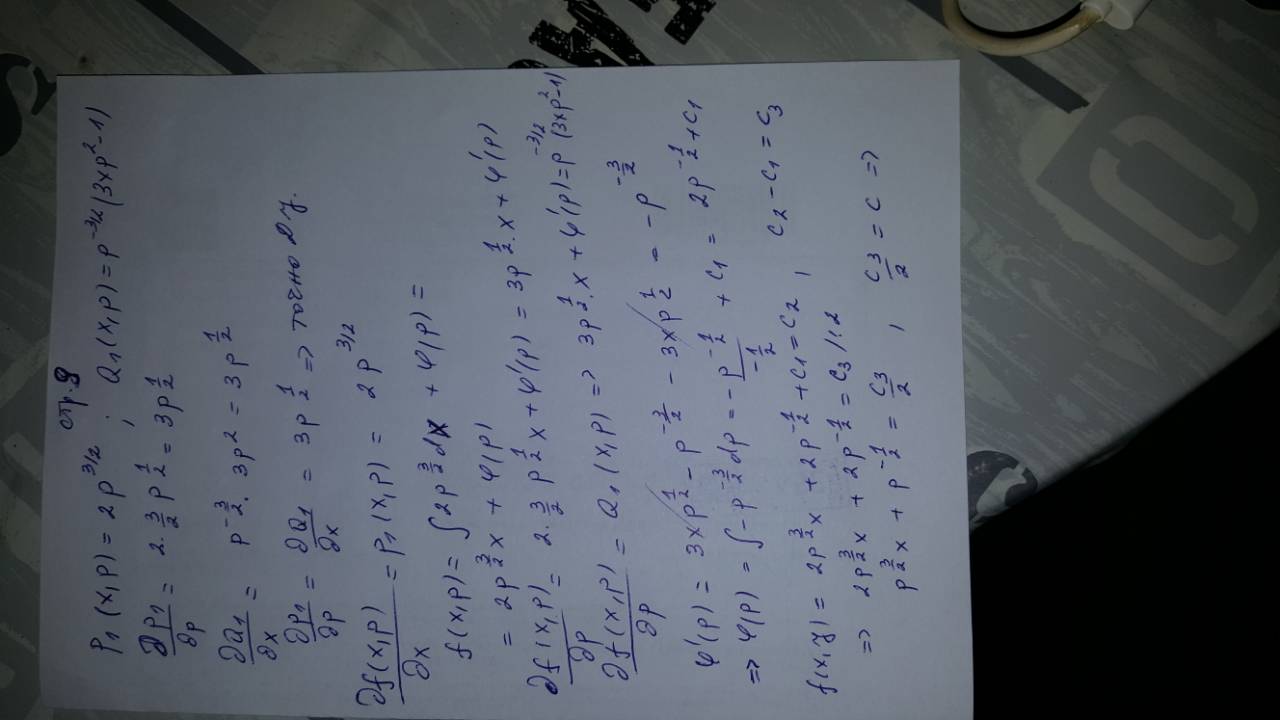 стр. 9
P₁(x,p) = 2p^{3/2} ; Q₁(x,p) = p^{-3/2}(3xp²-1)
∂P₁/∂p = 2·3/2 p^{1/2} = 3p^{1/2}
∂Q₁/∂x = p^{-3/2}·3p² = 3p^{1/2}
∂P₁/∂p = ∂Q₁/∂x = 3p^{1/2} => точно ДУ.
∂f(x,p)/∂x = P₁(x,p) = 2p^{3/2}
f(x,p) = ∫2p^{3/2}dx + φ(p) =
= 2p^{3/2}x + φ(p)
∂f(x,p)/∂p = 2·3/2 p^{1/2}x + φ'(p) = 3p^{1/2}·x + φ'(p)
∂f(x,p)/∂p = Q₁(x,p) => 3p^{1/2}·x + φ'(p) = p^{-3/2}(3xp²-1)
φ'(p) = 3xp^{1/2} - p^{-3/2} - 3xp^{1/2} = -p^{-3/2}
=> φ(p) = ∫-p^{-3/2}dp = -p^{-1/2}/-1/2 + C₁ = 2p^{-1/2} + C₁
f(x,y) = 2p^{3/2}x + 2p^{-1/2} + C₁ = C₂ , C₂ - C₁ = C₃
=> 2p^{3/2}x + 2p^{-1/2} = C₃ /:2
p^{3/2}x + p^{-1/2} = C₃/2 , C₃/2 = C =>